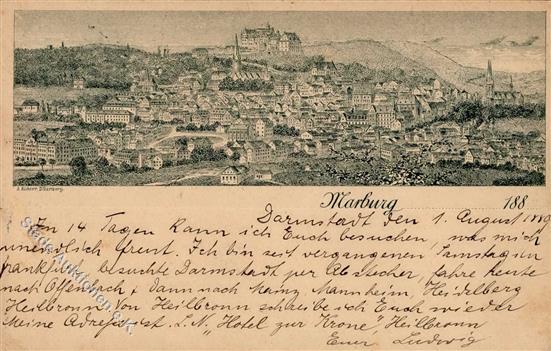 Marburg 188
Darmstadt den 1. August 1889
In 14 Tagen kann ich Euch besuchen, was mich
unendlich freut. Ich bin seit vergangenen Samstag in
Frankfurt, besuchte Darmstadt per Abstecher, fahre heute
nach Offenbach & dann nach Mainz Mannheim, Heidelberg
Heilbronn. Von Heilbronn schreibe ich Euch wieder
Meine Adresse ist L. N. "Hotel zur Krone", Heilbronn
Euer Ludwig